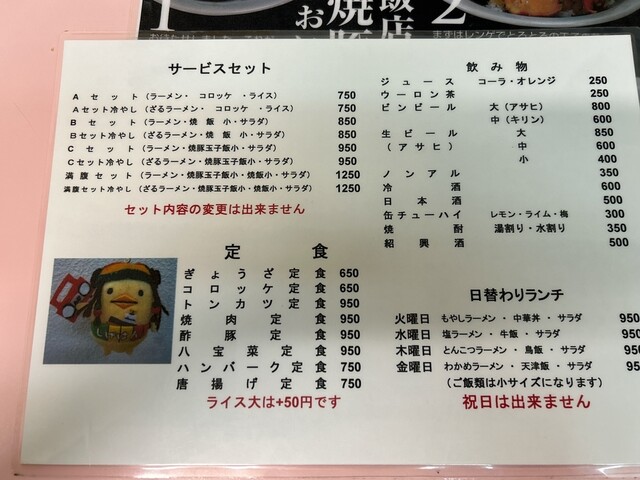 1
2
飯店
焼豚
サービスセット
A セット (ラーメン・ コロッケ ・ライス) 750
Aセット冷やし (ざるラーメン・ コロッケ ・ライス) 750
B セット (ラーメン・焼 飯 小・サラダ) 850
Bセット冷やし (ざるラーメン・焼 飯 小・サラダ) 850
C セット (ラーメン・焼豚玉子飯小・サラダ) 950
Cセット冷やし (ざるラーメン・焼豚玉子飯小・サラダ) 950
満腹セット (ラーメン・焼豚玉子飯小・焼飯小・サラダ) 1250
満腹セット冷やし (ざるラーメン・焼豚玉子飯小・焼飯小・サラダ) 1250
セット内容の変更は出来ません
定 食
ぎょうざ定食 650
コロッケ定食 650
トンカツ定食 950
焼肉定食 950
酢豚定食 950
八宝菜定食 950
ハンバーク定食 750
唐揚げ定食 750
ライス大は+50円です
飲み物
ジュース コーラ・オレンジ 250
ウーロン茶 250
ビンビール 大(アサヒ) 800
中(キリン) 600
生ビール 大 850
(アサヒ) 中 600
小 400
ノンアル 350
冷酒 600
日本酒 500
缶チューハイ レモン・ライム・梅 300
焼酎 湯割り・水割り 350
紹興酒 500
日替わりランチ
火曜日 もやしラーメン・中華丼・サラダ 950
水曜日 塩ラーメン・牛飯・サラダ 950
木曜日 とんこつラーメン・鳥飯・サラダ 950
金曜日 わかめラーメン・天津飯・サラダ 950
(ご飯類は小サイズになります)
祝日は出来ません